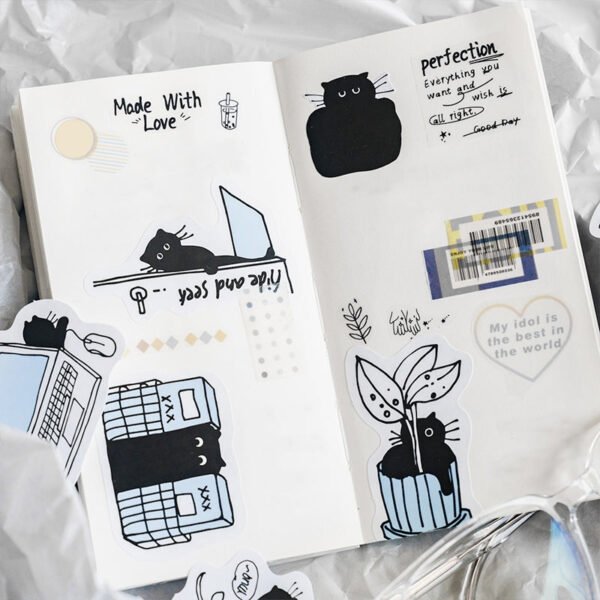 Made With
Love
perfection
Everything you
want and
wish is
all right.
Good Day
hide and seek
My idol is
the best in
the world
XXX
XXX